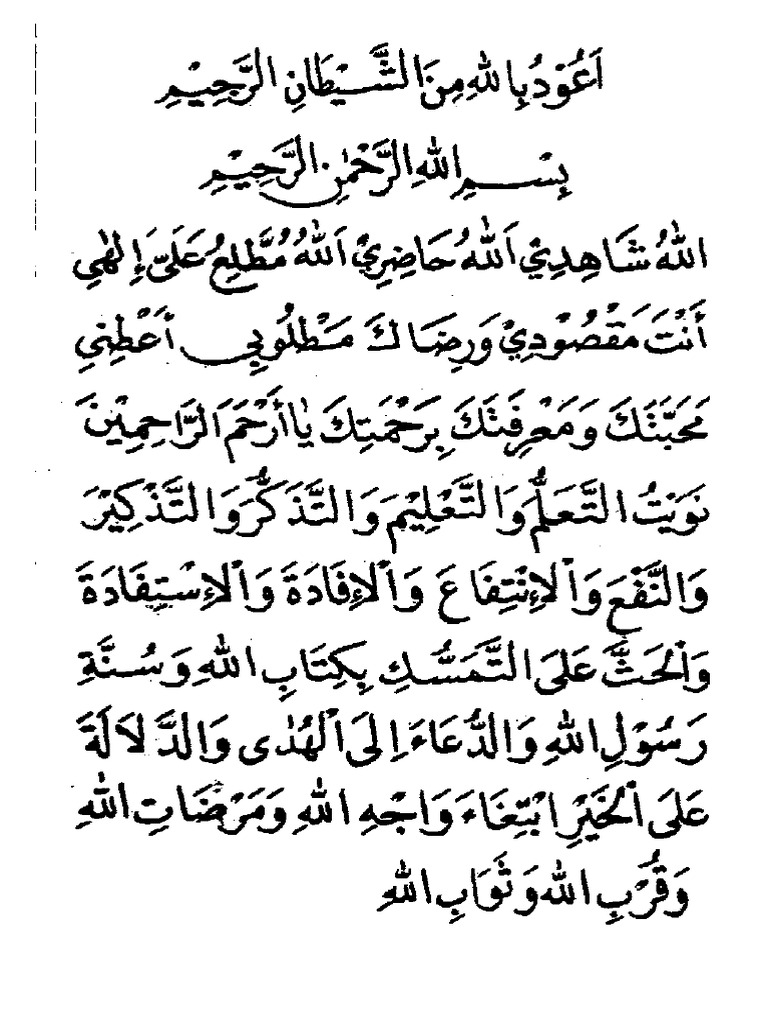 اَعُوْدُ بِاللهِ مِنَ الشَّيْطَانِ الرَّجِيْمِ
بِسْمِ اللهِ الرَّحْمٰنِ الرَّحِيْمِ
اللهُ شَاهِدِيْ اَللهُ حَاضِرِيْ اَللهُ مُطَّلِعٌ عَلَيَّ إِلٰهِي
أَنْتَ مَقْصُوْدِيْ وَرِضَاكَ مَطْلُوبِي أَعْطِنِي
مَحَبَّتَكَ وَمَعْرِفَتَكَ بِرَحْمَتِكَ يَا أَرْحَمَ الرَّاحِمِيْنَ
نَوَيْتُ التَّعَلُّمَ وَالتَّعْلِيْمَ وَالتَّذَكُّرَ وَالتَّذْكِيْرَ
وَالنَّفْعَ وَاْلاِنْتِفَاعَ وَاْلاِفَادَةَ وَاْلاِسْتِفَادَةَ
وَاْلحَثَّ عَلَى التَّمَسُّكِ بِكِتَابِ اللهِ وَسُنَّةِ
رَسُوْلِ اللهِ وَالدُّعَاءَ اِلَى اْلهُدٰى وَالدَّلَالَةَ
عَلَى اْلخَيْرِ ابْتِغَاءَ وَاجْهِ اللهِ وَمَرْضَاتِ اللهِ
وَقُرْبِ اللهِ وَثَوَابِ اللهِ